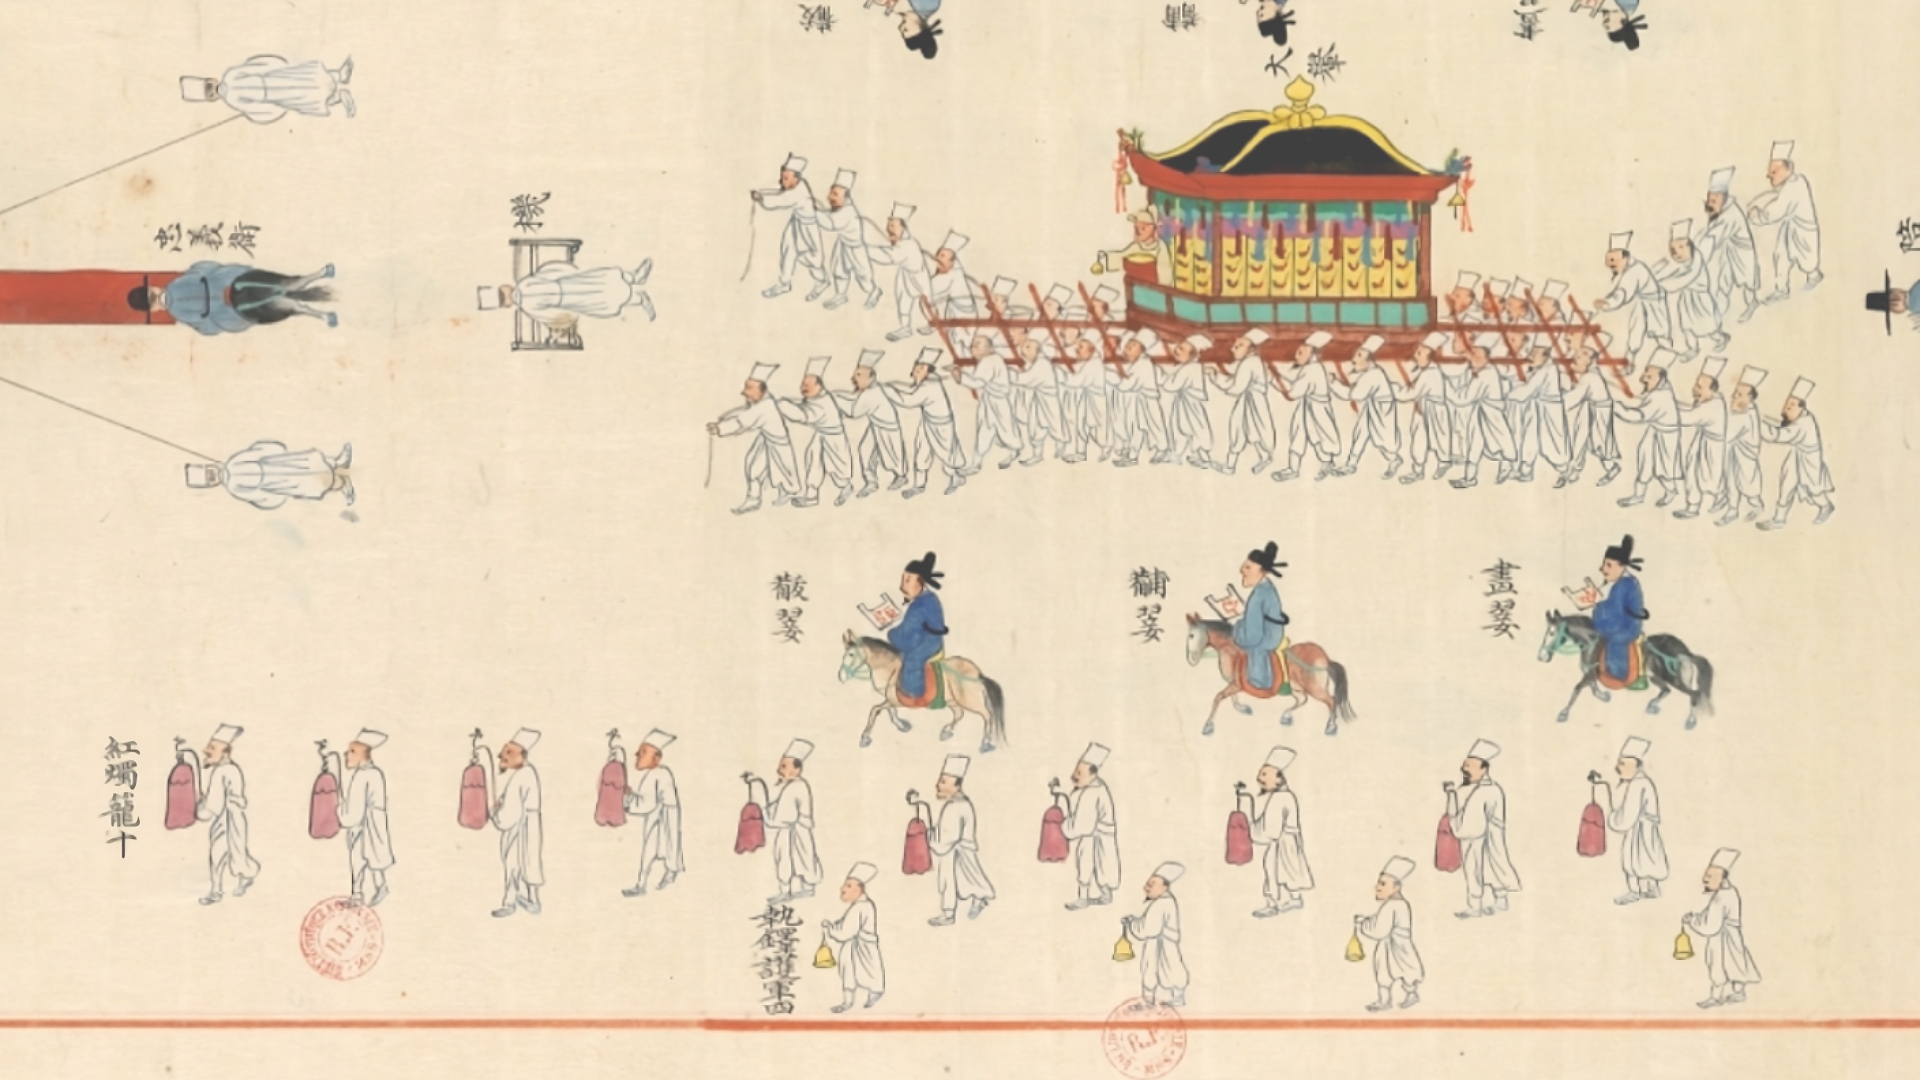 大轝
忠義衛
機
黻翣
黼翣
畫翣
紅燭籠十
執鐸護軍四
R.F.
R.F.